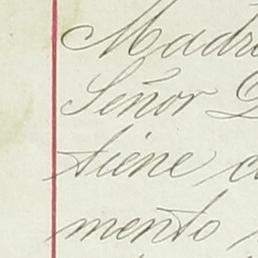 Madri
Señor D
tiene c
mento